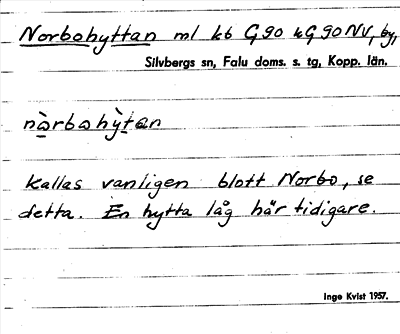 Norbohyttan ml kb G 90 kG 90 NV, by,
Silvbergs sn, Falu doms. s. tg, Kopp. län.
nòrbohỳtan
Kallas vanligen blott Norbo, se
detta. En hytta låg här tidigare.
Inge Kvist 1957.